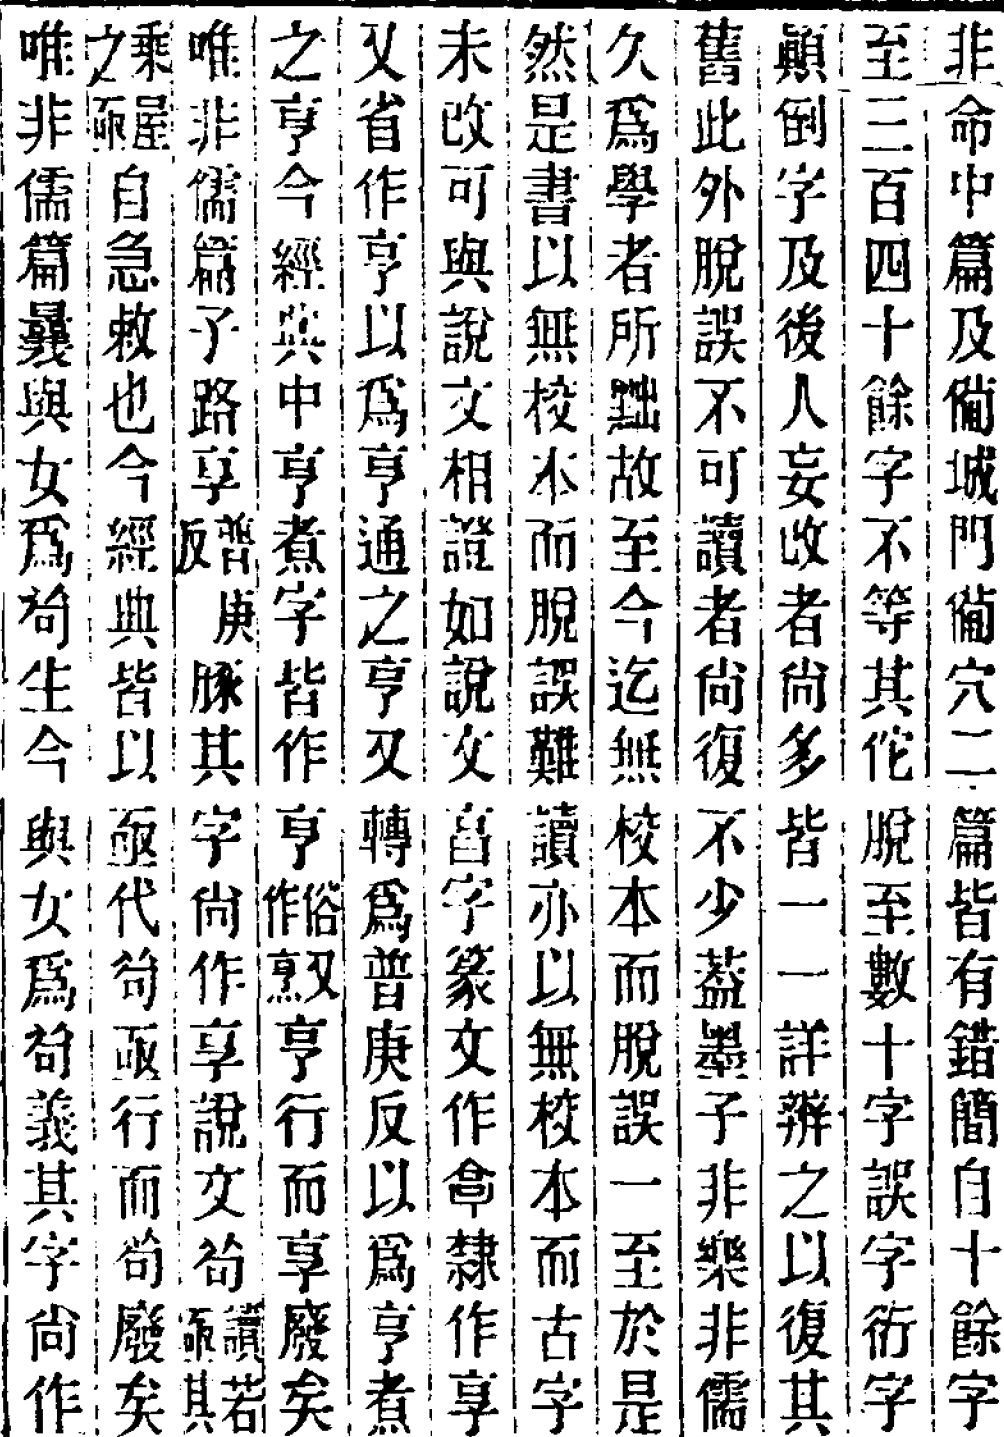 非命中篇及備城門備穴二篇皆有錯簡自十餘字
至三百四十餘字不等其佗脫至數十字誤字衍字
顚倒字及後人妄改者尙多皆一一詳辨之以復其
舊此外脫誤不可讀者尙復不少葢墨子非樂非儒
久爲學者所黜故至今迄無校本而脫誤一至於是
然是書以無校本而脫誤難讀亦以無校本而古字
未改可與說文相證如說文亯字篆文作𠅠隸作享
又省作亨以爲亨通之亨又轉爲普庚反以爲亨煮
之亨今經典中亨煮字皆作亨俗又作烹亨行而享廢矣
唯非儒篇子路享普庚反豚其字尙作享說文茍讀若亟其
乘屋之亟自急敕也今經典皆以亟代茍亟行而茍廢矣
唯非儒篇曩與女爲茍生今與女爲茍義其字尙作